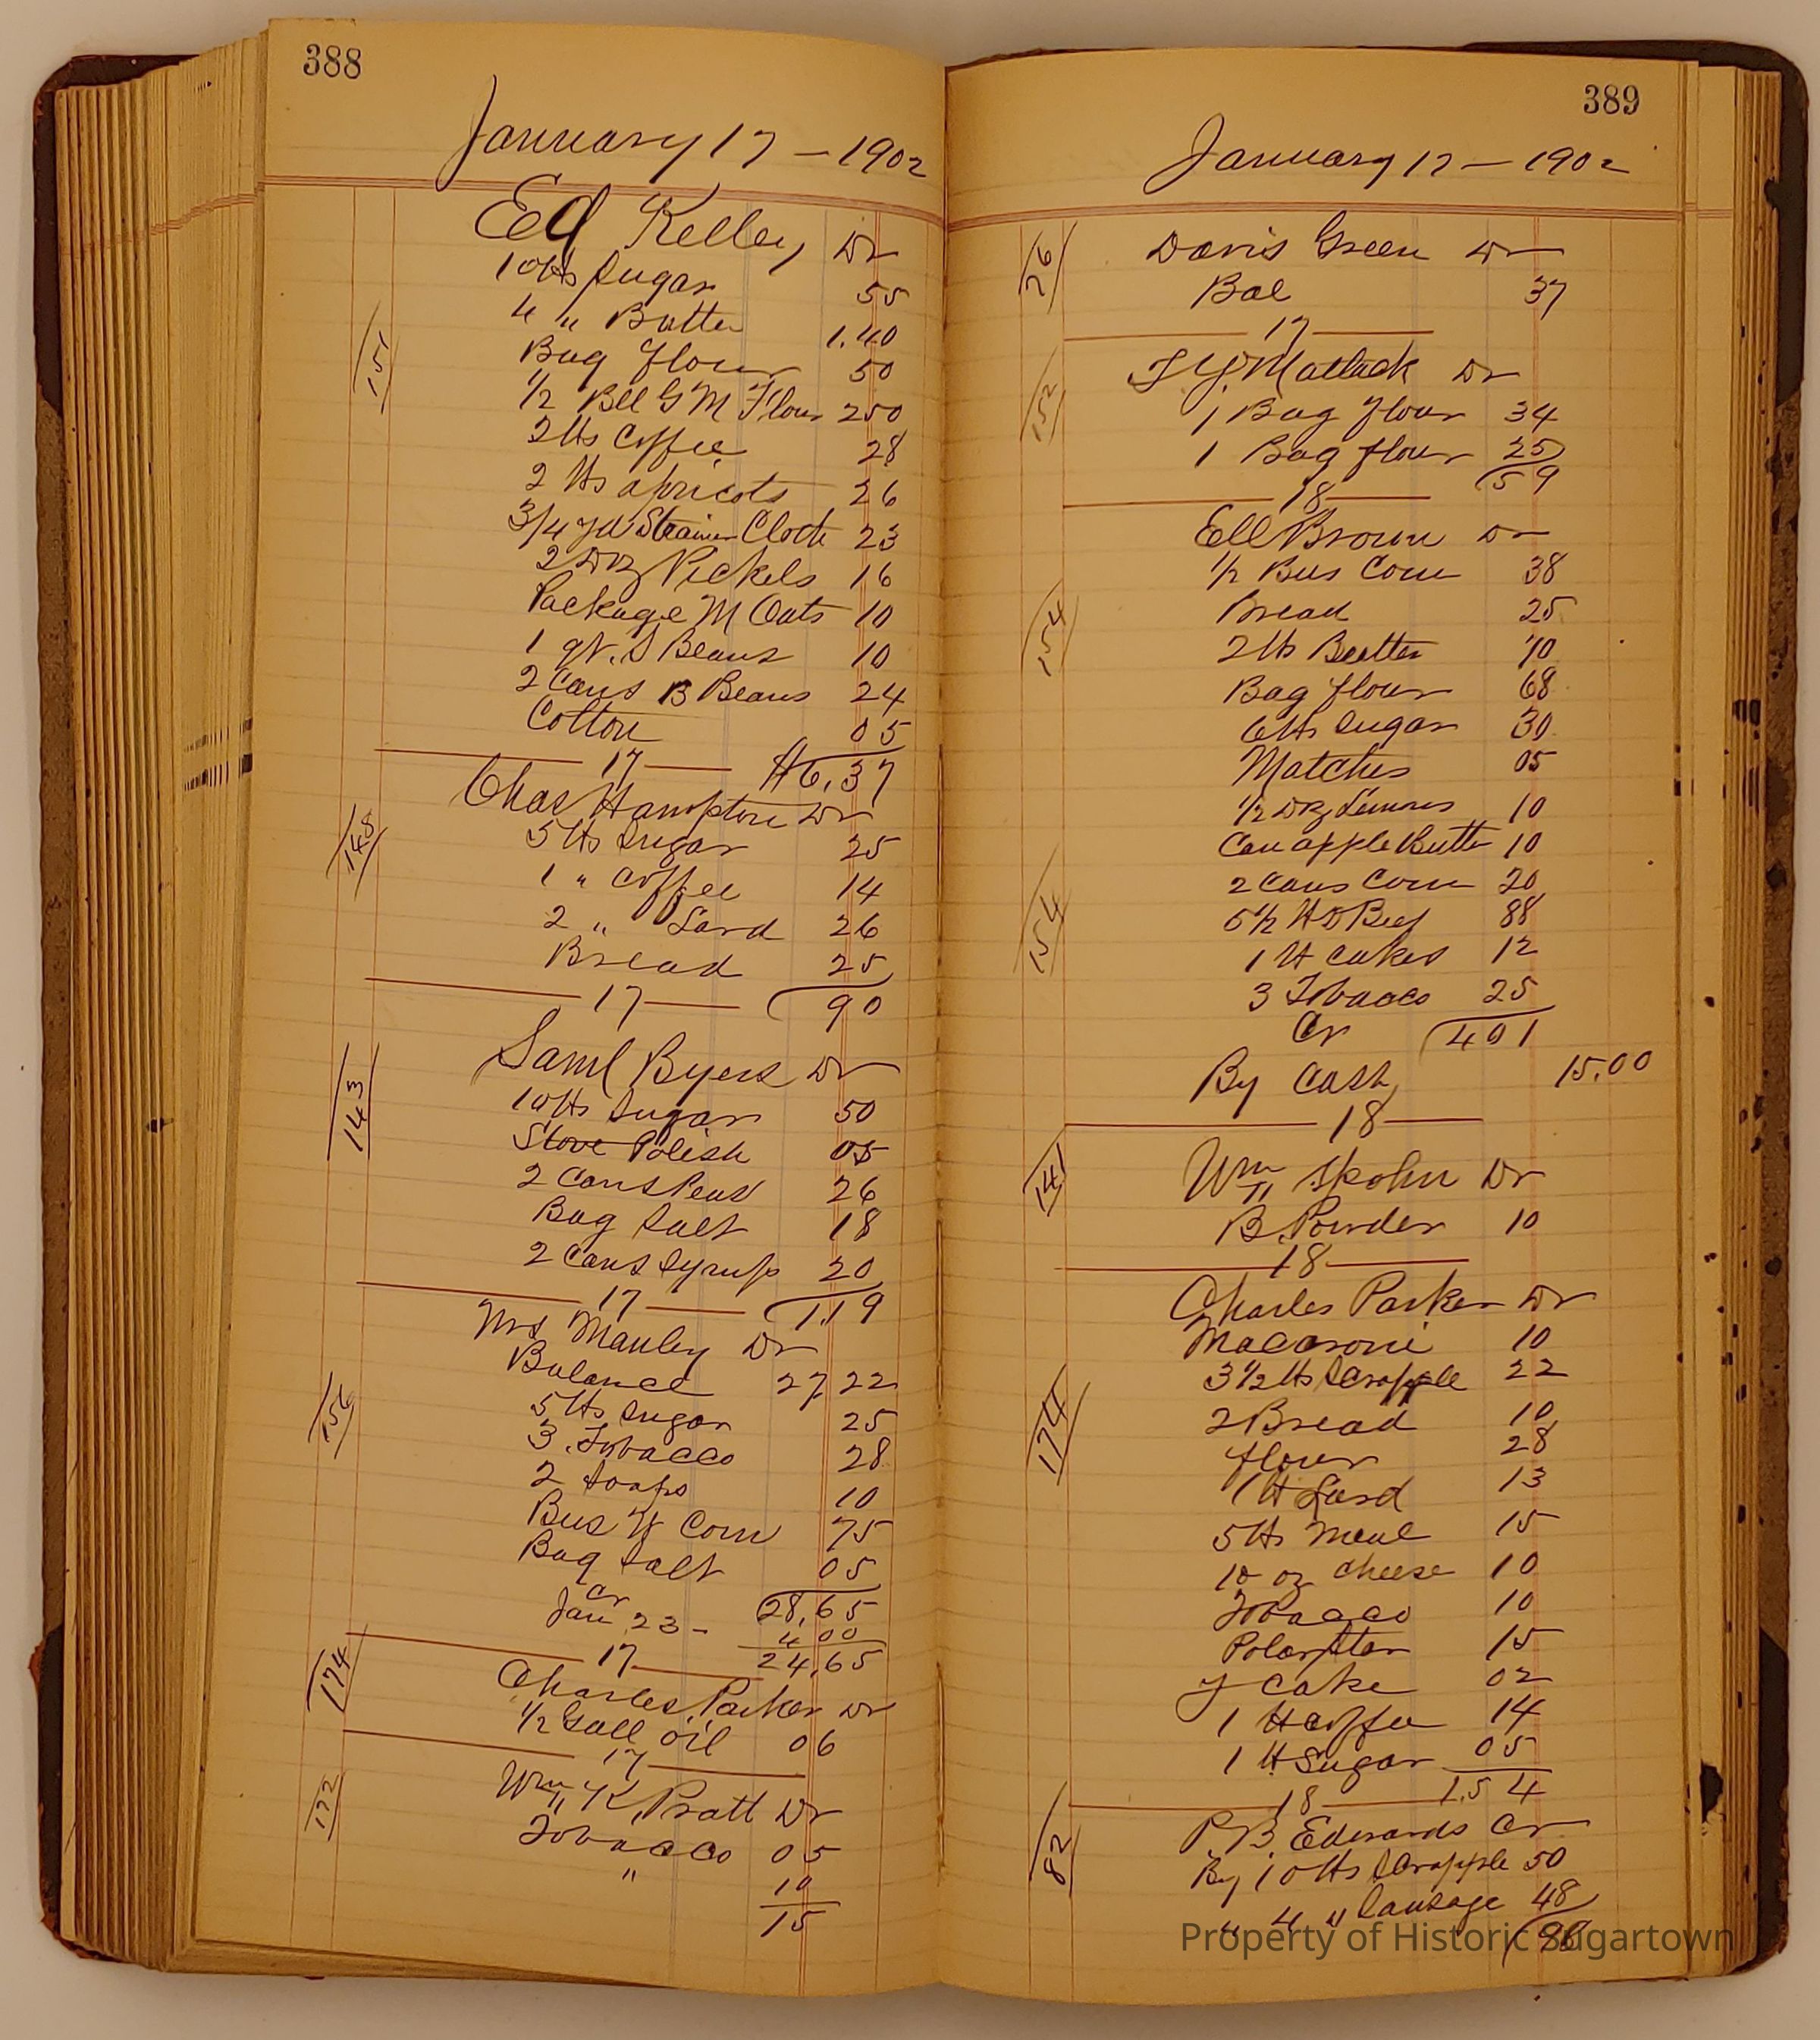 388
January 17 – 1902
Ed Kelley Dr
151
10 lbs Sugar 55
4 " Butter 1.40
Bag flour 50
1/2 Bll G M Flour 250
2 lbs Coffee 28
2 lbs apricots 26
3/4 yd Strainer Cloth 23
2 Doz Pickels 16
Package M Oats 10
1 qt. S Beans 10
2 Cans B Beans 24
Cotton 05
17 $6.37
Chas Hampton Dr
148
5 lbs Sugar 25
1 " Coffee 14
2 " Lard 26
Bread 25
17 90
Saml Byers Dr
143
10 lbs Sugar 50
Stove Polish 05
2 Cans Peas 26
Bag Salt 18
2 Cans Syrup 20
17 1.19
Mrs Manley Dr
Balance 27 22
156
5 lbs Sugar 25
3 Tobacco 28
2 Soaps 10
Bus W Corn 75
Bag Salt 05
Cr 28.65
Jan 23 - 4 00
17 24.65
174
Charles Parker Dr
1/2 Gall oil 06
17
172
Wm K Pratt Dr
Tobacco 05
" 10
15
389
January 17 – 1902
26
Davis Green Dr
Bal 37
17
T J. Matlack Dr
152
1 Bag flour 34
1 Bag flour 25
18 59
Ell Brown Dr
1/2 Bus Corn 38
154
Bread 25
2 lbs Butter 70
Bag flour 68
6 lbs Sugar 30
Matches 05
1/2 Doz Lemons 10
Can apple Butter 10
2 Cans Corn 20
154
5 1/2 lb D Beef 88
1 lb Cakes 12
3 Tobacco 25
Cr 401
By Cash 15.00
18
141
Wm Spohn Dr
B. Powder 10
18
Charles Parker Dr
Macaroni 10
174
3 1/2 lbs Scrapple 22
2 Bread 10
flour 28
1 lb Lard 13
5 lbs Meal 15
10 oz Cheese 10
Tobacco 10
15
Y Cake 02
1 lb Coffee 14
1 lb Sugar 05
18 1.54
82
P. B. Edwards Cr
By 10 lbs Scrapple 50
" 4 " Sausage 48
98
Property of Historic Sugartown